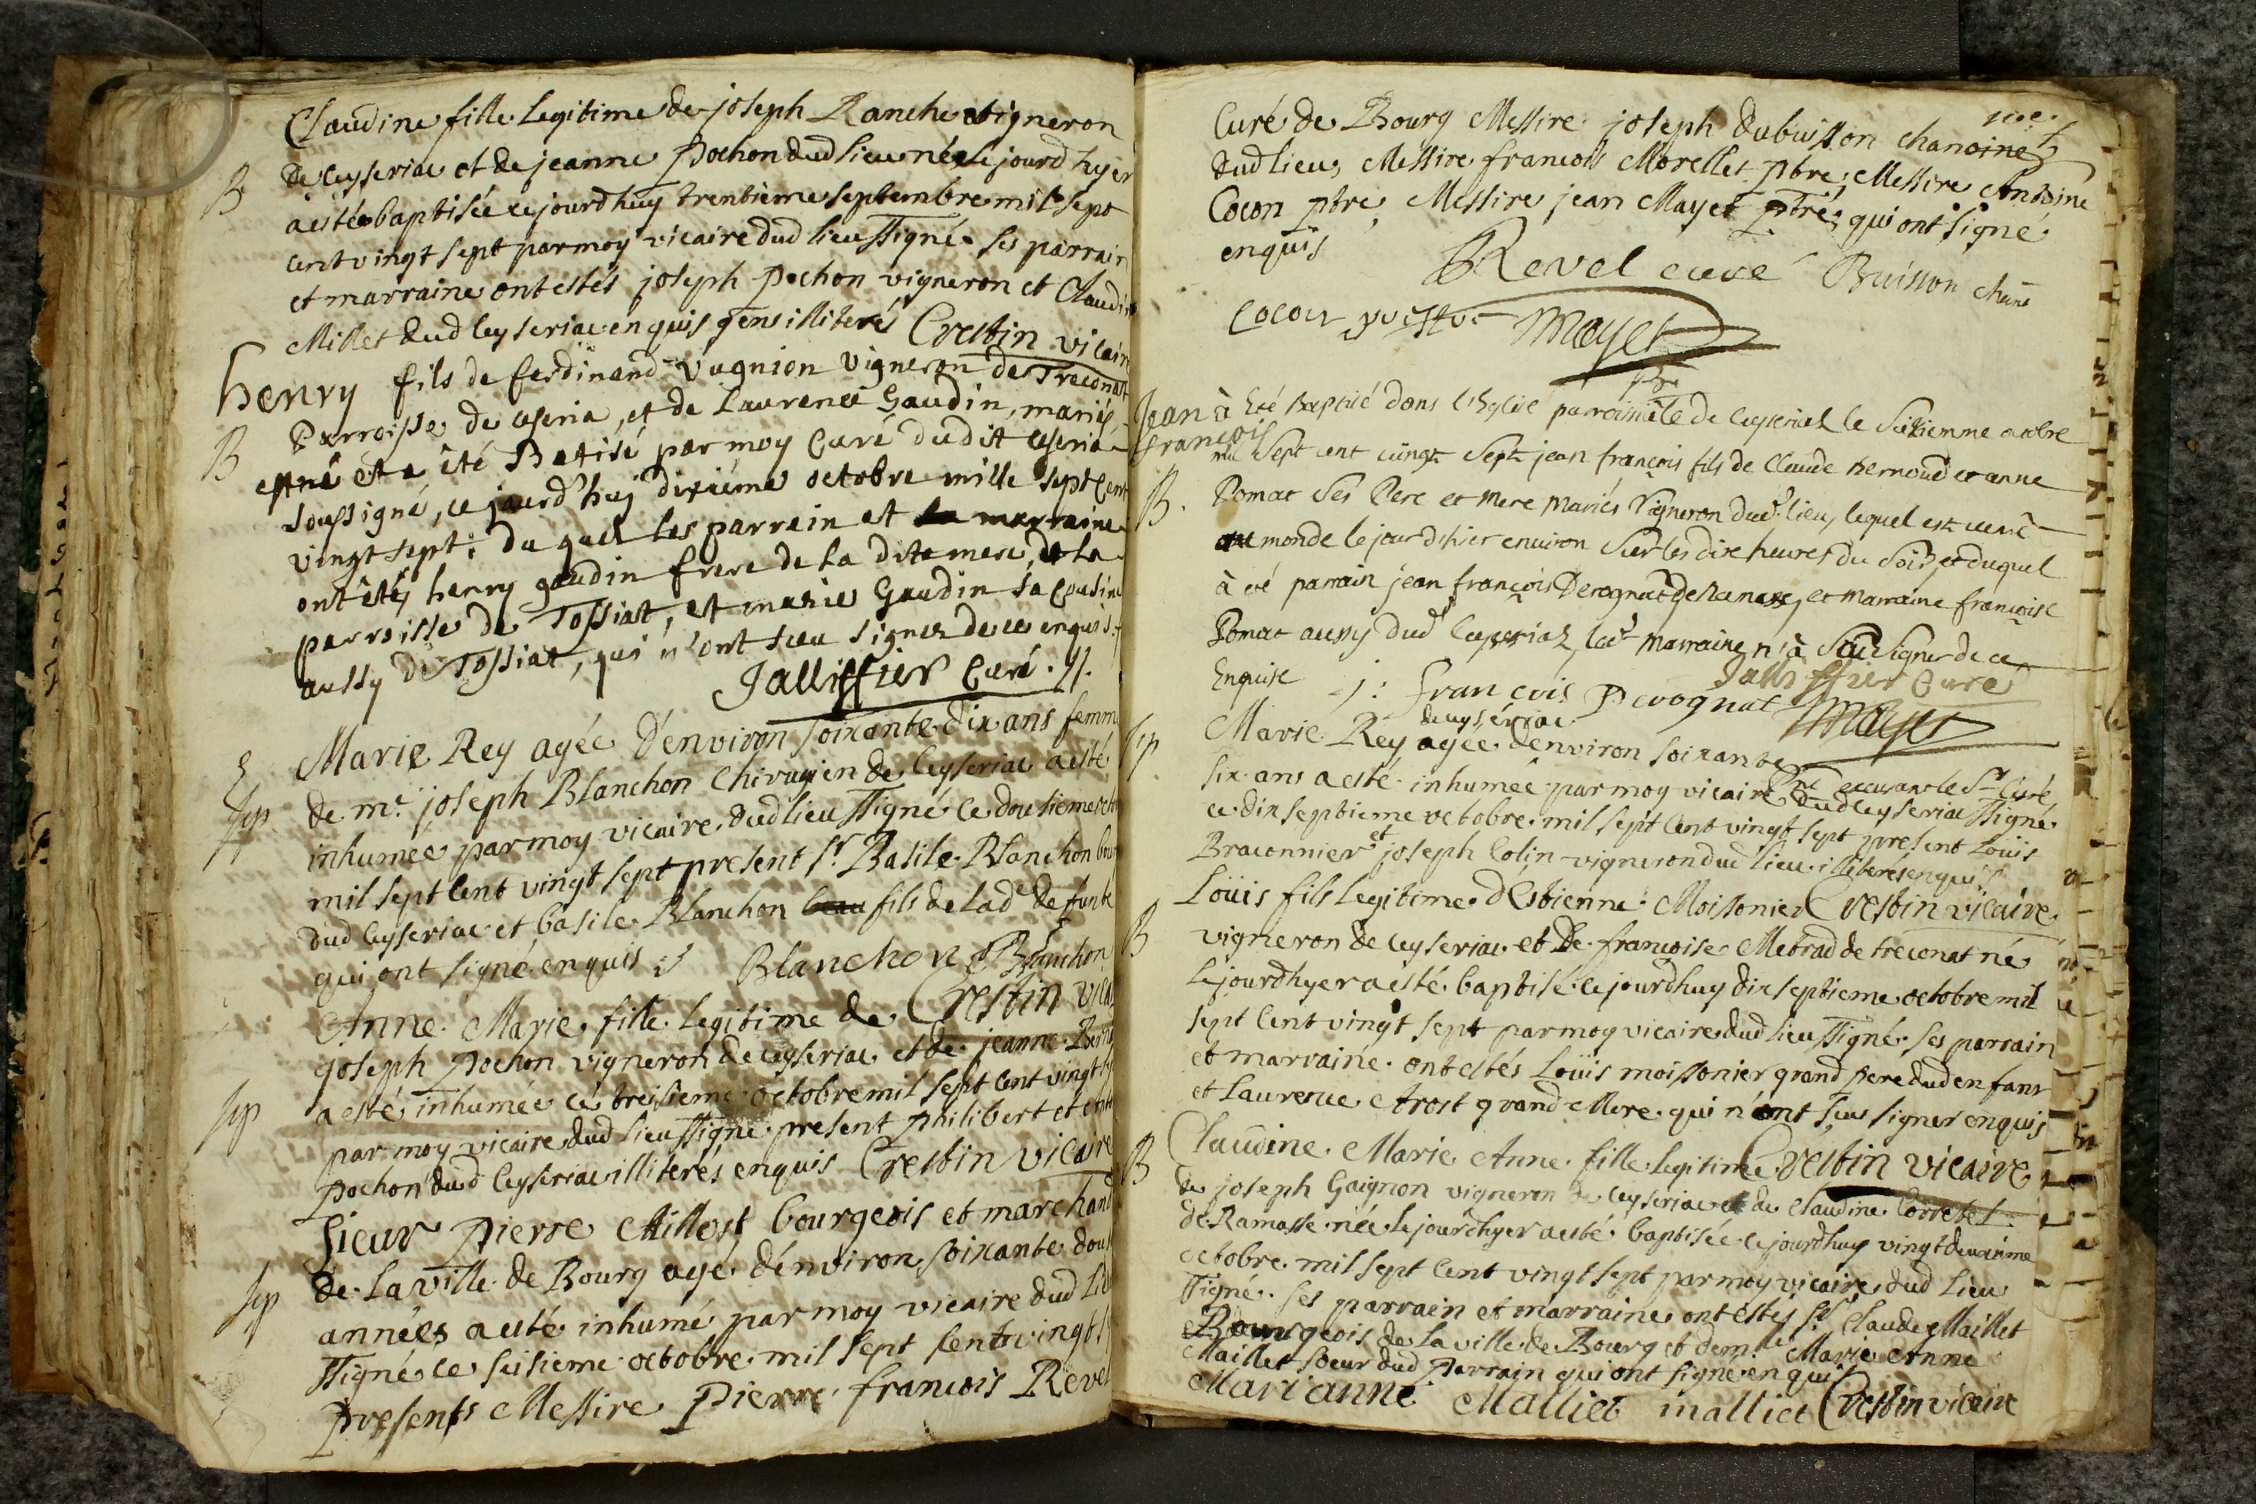 Claudine fille legitime de joseph Ranche vigneron
B
de ceyseriac et de jeanne Pochon dud lieu née le jourd hyer
a esté baptisée cejourd huy trentième septembre mil sept
cent vingt sept par moy vicaire dud lieu ssigné. ses parrain
et marraine ont estés joseph pochon vigneron et Claudine
Millet dud Ceyseriac enquis gens illiterés Crestin vicaire
henry fils de ferdinand Vugnion Vigneron de Treconat
B
Parroisse de ceseria, et de Laurence Gaudin, mariés
est né et a êté Batisé par moy Curé dudit ceseria
soussigné, ce jourd'huj dixiéme octobre mille sept cent
vingt sept; du quel les parrein et la marraine
ont êtés henry gaudin frere de la dite mere, de la
parroisse de Tossiat, et marie Gaudin sa cousine
aussy de Tossiat, qui n'ont sceu signer de ce enquis.
Jalliffier Curé.
Marie Rey agée d'environ soixante dix ans femme
Sep
de mr. joseph Blanchon Chirugien de Ceyseriac a esté
inhumée par moy vicaire dud lieu ssigné ce dousieme
mil sept Cent vingt sept present sr. Basile Blanchon
dud Ceyseriac et basile Blanchon beau fils de lad defunte
qui ont signé enquis Blanchon Blanchon
Crestin vicaire
Anne Marie fille legitime de
joseph Pochon vigneron de ceyseriac et de jeanne
Sep
a esté inhumée ce treisieme octobre mil sept cent vingt
par moy vicaire dud lieu ssigné present philibert et
Pochon dud Ceyseriac illiterés enquis Crestin vicaire
Sieur Pierre Millost bourgeois et marchand
Sep
de la ville de Bourg agé d'environ soixante
années a esté inhumé par moy vicaire dud
ssigné ce seisieme octobre mil sept Cent vingt
presents Messire Pierre francois Revel
Curé de Bourg Messire joseph dubuisson chanoine
dud lieu, Messire francois Morellet ptre, Messire Antoine
Cocon ptre, Messire jean Mayet ptre, qui ont signé
enquis
Revel curé Buisson
Cocon Mayet
ptre
Jean
francois
à été Baptisé dans l'Eglise parroissiale de ceyseriat le Sixiemme
B.
mil Sept cent vingt Sept jean francois fils de Claude Hernoud et anne
Pomat Ses Pere et mere mariés Vigneron dud. lieu, lequel est venû
au monde le jour d'hier environ Sur les dix heures du Soir, et duquel
à été parrain jean francois Derognat de Ramasse, et marraine francoise
Pomat aussy dud Ceyseriaz, lad marraine n'à Scu Signer de ce
Enquise
Jalliffier Curé
j: francois Derognat Mayet
Marie Rey de ceyseriac agée d'environ soixante
Sep
six ans a esté inhumée par moy vicaire dud ceyseriac ssigné
ce dix septieme octobre mil sept Cent vingt sept present Loüis
Braconnier et joseph Colin vigneron dud lieu illiterés enquis
Crestin vicaire
Loüis fils legitime d'Estienne Moissonier
B
vigneron de ceyseriac et de francoise Metrad de treconat né
le jourd hyer a esté baptisé cejourdhuy dix septieme octobre mil
sept Cent vingt sept par moy vicaire dud lieu ssigné. ses parrain
et marraine ont estés Loüis moissonier grand pere dud enfant
et Laurence Arost grand Mere qui n'ont sceu signer enquis
Crestin vicaire
Claudine Marie Anne fille legitime
B
de joseph Gaignon vigneron de ceyseriac et de Claudine
de Ramasse née le jourdhyer a esté baptisée cejourdhuy vingt deuxieme
octobre mil sept Cent vingt sept par moy vicaire dud Lieu
ssigné. ses parrain et marraine ont Estés sr Claude Maillet
Bourgeois de la ville de Bourg et demlle Marie Anne
Maillet soeur dud Parrain qui ont signé enquis
Marianne Malliet malliet Crestin vicaire